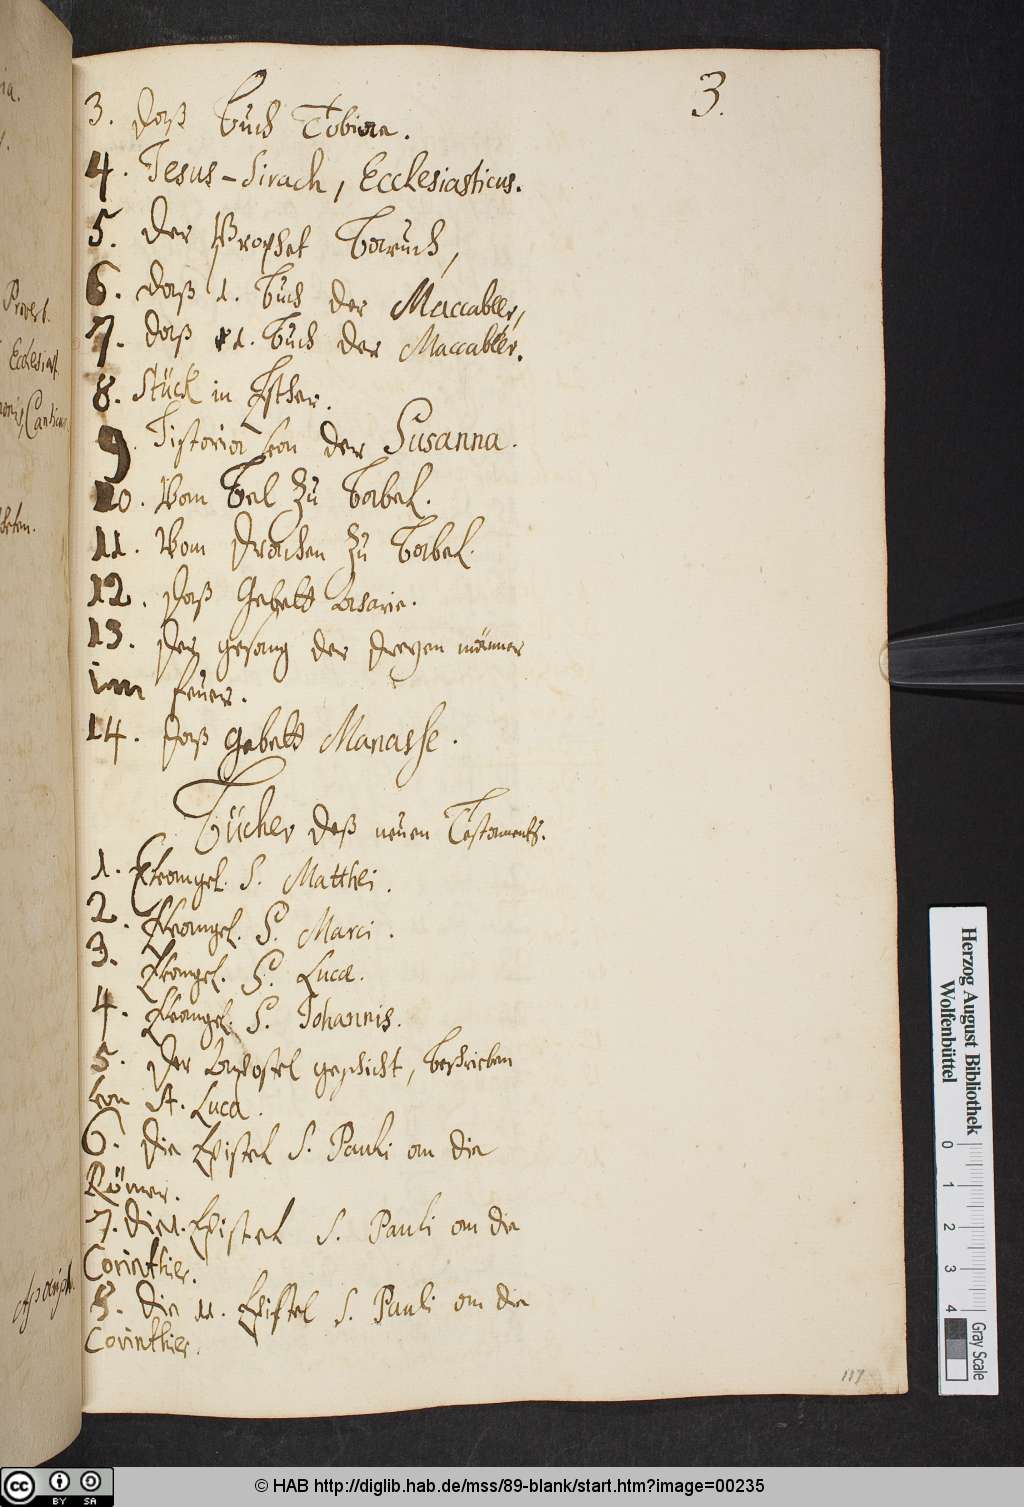 3.
3. Daß Buch Tobiae.
4. Jesus-Sirach, Ecclesiasticus.
5. Der Prophet Baruch,
6. Daß 1. Buch der Maccabeer,
7. Daß 11. Buch der Maccabeer.
8. Stück in Esther.
9. Historia von der Susanna.
10. Vom Bel zu Babel.
11. Vom Drachen zu Babel.
12. Daß Gebett Asarie.
13. Der gesang der dreyen männer
im feuer.
14. Daß gebett Manasse.
Bücher deß neuen Testaments.
1. Evangel. S. Matthei.
2. Evangel. S. Marci.
3. Evangel. S. Lucae.
4. Evangel. S. Johannis.
5. Der Apostel geschicht, beschrieben
von St. Luca.
6. Die Epistel S. Pauli an die
Römer.
7. Die 1. Epistel S. Pauli an die
Corinthier.
8. Die 11. Epistel S. Pauli an die
Corinthier.
117
Proverb.
Ecclesiast
Cantic
Herzog August Bibliothek
Wolfenbüttel
0 1 2 3 4
Gray Scale
cc BY SA
© HAB http://diglib.hab.de/mss/89-blank/start.htm?image=00235